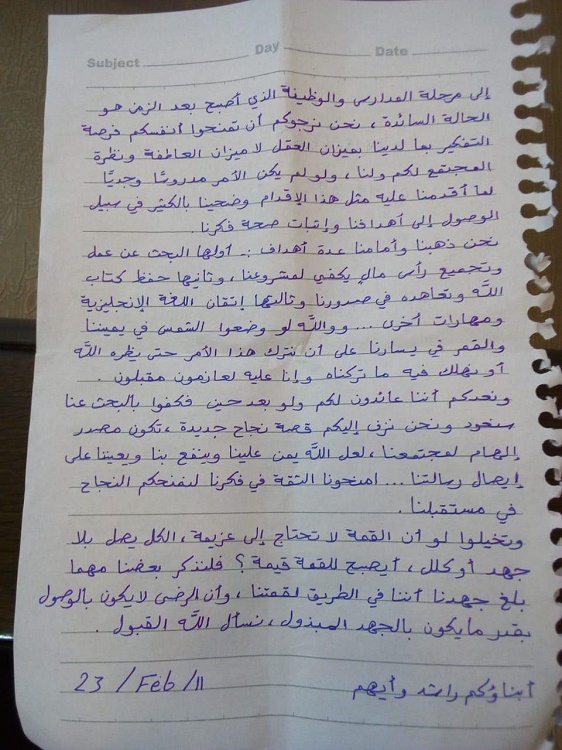 Subject Day Date
إلى مرحلة المدارس والوظيفة الذي أصبح بعد الزمن هو
الحالة السائدة، نحن نرجوكم أن تمنحوا أنفسكم فرصة
التفكير بما لدينا بميزان العقل لا ميزان العاطفة ونظرة
المجتمع لكم ولنا، ولو لم يكن الأمر مدروسًا وجديًا
لما أقدمنا عليه مثل هذا الإقدام وضحينا بالكثير في سبيل
الوصول إلى أهدافنا وإثبات صحة فكرنا.
نحن ذهبنا وأمامنا عدة أهداف :. أولها البحث عن عمل
وتجميع رأس مالٍ يكفي لمشروعنا، وثانيها حفظ كتاب
اللَّه وتعاهده في صدورنا وثالثها إتقان اللغة الإنجليزية
ومهارات أخرى ... وواللَّه لو وضعوا الشمس في يميننا
والقمر في يسارنا على أن نترك هذا الأمر حتى يظهره اللَّه
أو نهلك فيه ما تركناه وإنا عليه لعازمون مقبلون.
ونعدكم أننا عائدون لكم ولو بعد حين فكفوا بالبحث عنا
سنعود ونحن نزف إليكم قصة نجاح جديدة، تكون مصدر
إلهام لمجتمعنا، لعل اللَّه يمن علينا وينفع بنا ويعيننا على
إيصال رسالتنا ... امنحونا الثقة في فكرنا لنمنحكم النجاح
في مستقبلنا.
وتخيلوا لو أن القمة لا تحتاج إلى عزيمة، الكل يصل بلا
جهد أو كلل، أيصبح للقمة قيمة؟ فلنذكر بعضنا مهما
بلغ جهدنا أننا في الطريق لقمتنا، وأن الرضى لا يكون بالوصول
بقدر ما يكون بالجهد المبذول، نسأل اللَّه القبول.
أبناؤكم راشد وأيهم
23 / Feb / 11